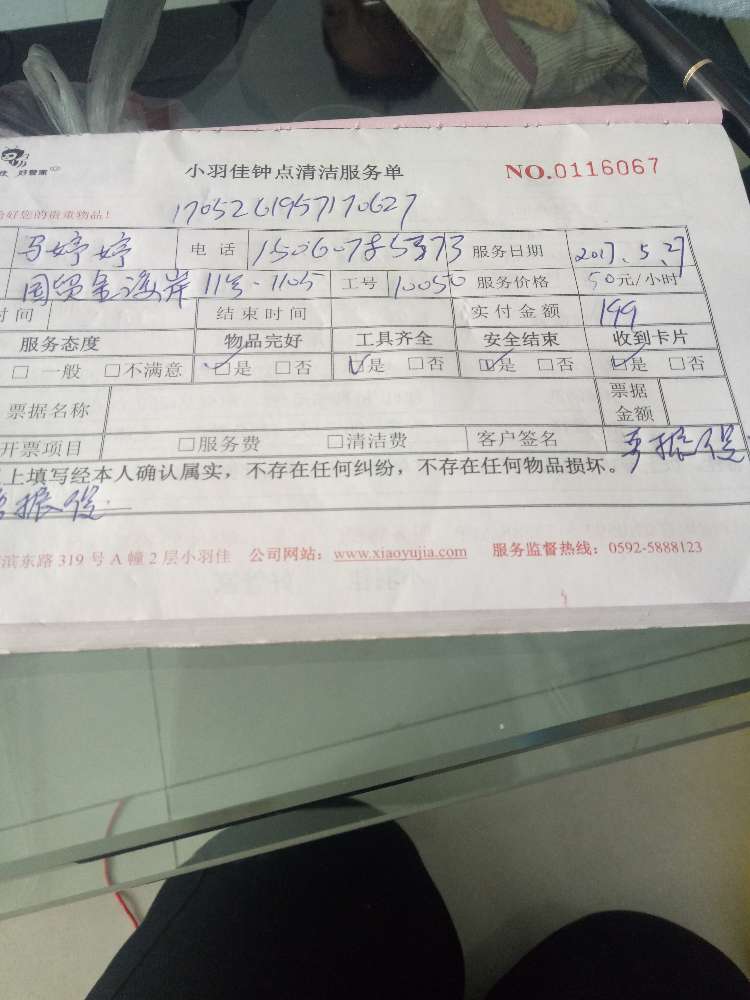 好管家
小羽佳钟点清洁服务单 NO.0116067
好您的贵重物品! 1705261957170627
马婷婷 电话 15060785373 服务日期 2017.5.27
国贸金海岸 11号-1105 工号 10050 服务价格 50元/小时
时间 结束时间 实付金额 199
服务态度 物品完好 工具齐全 安全结束 收到卡片
□一般 □不满意 □是 □否 □是 □否 □是 □否 □是 □否
票据名称 票据金额
开票项目 □服务费 □清洁费 客户签名
上填写经本人确认属实，不存在任何纠纷，不存在任何物品损坏。
滨东路319号A幢2层小羽佳 公司网站：www.xiaoyujia.com 服务监督热线：0592-5888123